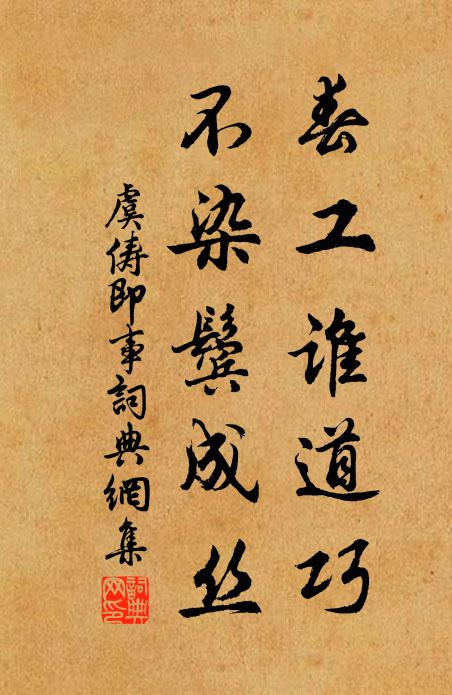 春工谁道巧
不染鬓成丝
虞俦即事詞典網集
詞典网印